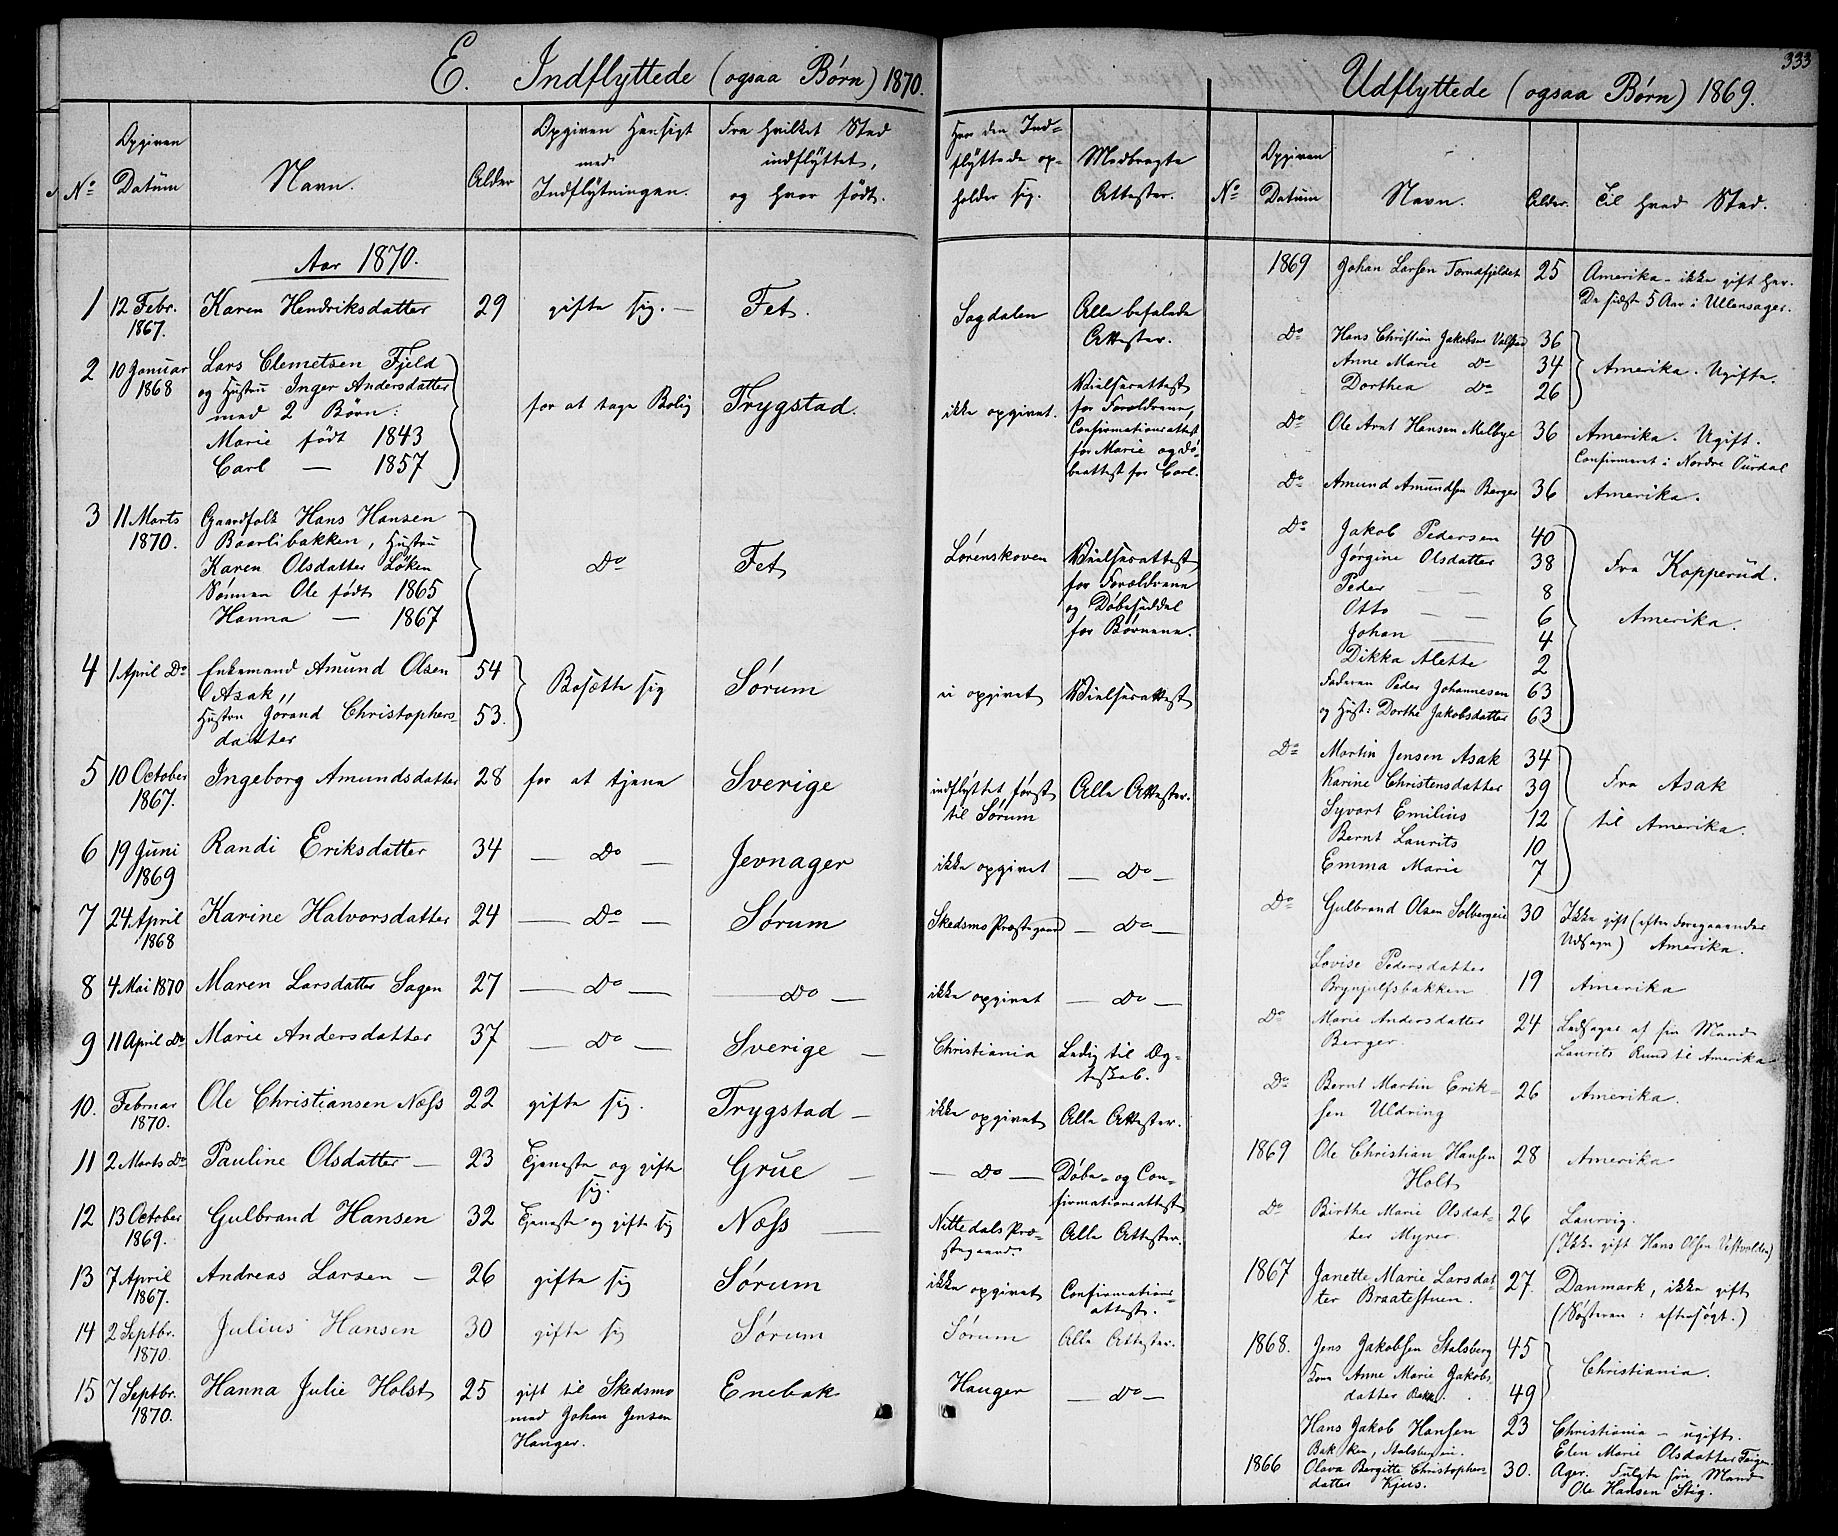 E. Indflyttede (ogsaa Børn) 1870.
No
Opgiven Datum
Navn.
Alder
Opgiven Hensigt med Indflytningen.
Fra hvilket Sted indflyttet, og hvor født.
Hvor den Indflyttede opholder sig.
Medbragte Attester.
Aar 1870.
1 12 Febr. 1867. Karen Hendriksdatter 29 gifte sig. — Fet. Sagdalen Alle befalede Attester.
2 10 Januar 1868 Lars Clemetsen Fjeld
og Hustru Inger Andersdatter
med 2 Børn:
Marie født 1843
Carl — 1857
for at tage Bolig Trygstad. ikke opgivet.
Vielsesattest
for Forældrene,
Confirmationsattest
for Marie og Dø-
beattest for Carl.
3 11 Marts 1870. Gaardfolk Hans Hansen
Baarlibakken, Hustru
Karen Olsdatter Løken
Sønnen Ole født 1865
Hanna — 1867
Do Fet Lørenskoven
Vielsesattest
for Forældrene
og Døbeseddel
for Børnene.
4 1 April Do Enkemand Amund Olsen 54
Asak,,
Hustru Jørand Christophers- 53.
datter
Bosætte sig Sørum ei opgivet Vielsesattest
5 10 October 1867. Ingeborg Amundsdatter 28 for at tjene Sverige indflyttet først til Sørum Alle Attester.
6 19 Juni 1869 Randi Eriksdatter 34 — Do — Jevnager ikke opgivet — Do —
7 24 April 1868 Karine Halvorsdatter 24 — Do — Sørum Skedsmo Præstegaard — Do —
8 4 Mai 1870 Maren Larsdatter Sagen 27 — Do — — Do — ikke opgivet — Do —
9 11 April Do Marie Andersdatter 37 — Do — Sverige — Christiania Ledig til Æg-
teskab.
10. Februar 1870. Ole Christiansen Næss 22 gifte sig. Trygstad — ikke opgivet Alle Attester.
11 2 Marts Do Pauline Olsdatter — 23 Tjeneste og gifte sig. Grue — — Do — Døbe- og Con-
firmationsattest
12 13 October 1869. Gulbrand Hansen 32 Tjeneste og gifte sig Næss — Nittedals Præ-
stegaard. Alle Attester.
13 7 April 1867. Andreas Larsen — 26 gifte sig Sørum ikke opgivet Confirmations-
attest.
14 2 Septbr. 1870. Julius Hansen 30 gifte sig Sørum Sørum Alle Attester.
15 7 Septbr. 1870. Hanna Julie Holst 25 gift til Skedsmo
med Johan Jensen
Hauger.
Enebak Hauger — Do —
333
Udflyttede (ogsaa Børn) 1869.
No
Opgiven Datum
Navn.
Alder.
Til hvad Sted.
1869 Johan Larsen Tomdfjeldet 25 Amerika - ikke gift her.
De sidste 5 Aar i Ullensager.
Do Hans Christian Jakobsen Valstad 36
Anne Marie Do 34
Dorthea Do 26
Amerika. Ugifte.
Do Ole Arnt Hansen Melbye 36 Amerika. Ugift.
Confirmeret i Nordre Ourdal
Do Amund Amundsen Berger 36 Amerika.
Do Jakob Pedersen 40
Jørgine Olsdatter 38
Peder — — 8
Otto — — 6
Johan — 4
Dikka Alette 2
Faderen Peder Johannesen 63
og Hust: Dorthe Jakobsdatter 63
Fra Kopperud.
Amerika.
Do Martin Jensen Asak 34
Karine Christensdatter 39
Syvart Emilius 12
Bernt Laurits 10
Emma Marie 7
Fra Asak
til Amerika.
Do Gulbrand Olsen Solbergeie 30 Ikke gift (efter Foregaaendes
Udsagn) Amerika.
Lovise Pedersdatter
Brynjulfsbakken 19 Amerika
Do Marie Andersdatter 24
Berger.
Ledsaget af sin Mand
Laurits Rund til Amerika
Do Bernt Martin Erik- 26 Amerika.
sen Uldring
1869 Ole Christian Hansen 28 Amerika
Holt
Do Birthe Marie Olsdat- 26 Laurvig.
ter Myrer.
(Ikke gift Hans Olsen Vestvolden)
1867 Janette Marie Larsdat- 27. Danmark, ikke gift
ter Braatestuen. (Søsteren: eftersøgt.)
1868. Jens Jakobsen Stalsberg 45
Kone Anne Marie Jakobs-
datter 49
Christiania.
Hans Jakob Hansen 23 Christiania - ugift.
Bakken, Stalsbergeie. Elen Marie Olsdatter
1866 Olava Bergitte Christophers- 30. Ager. Fulgte sin Mand
datter Kjus. Ole Hansen Stig.